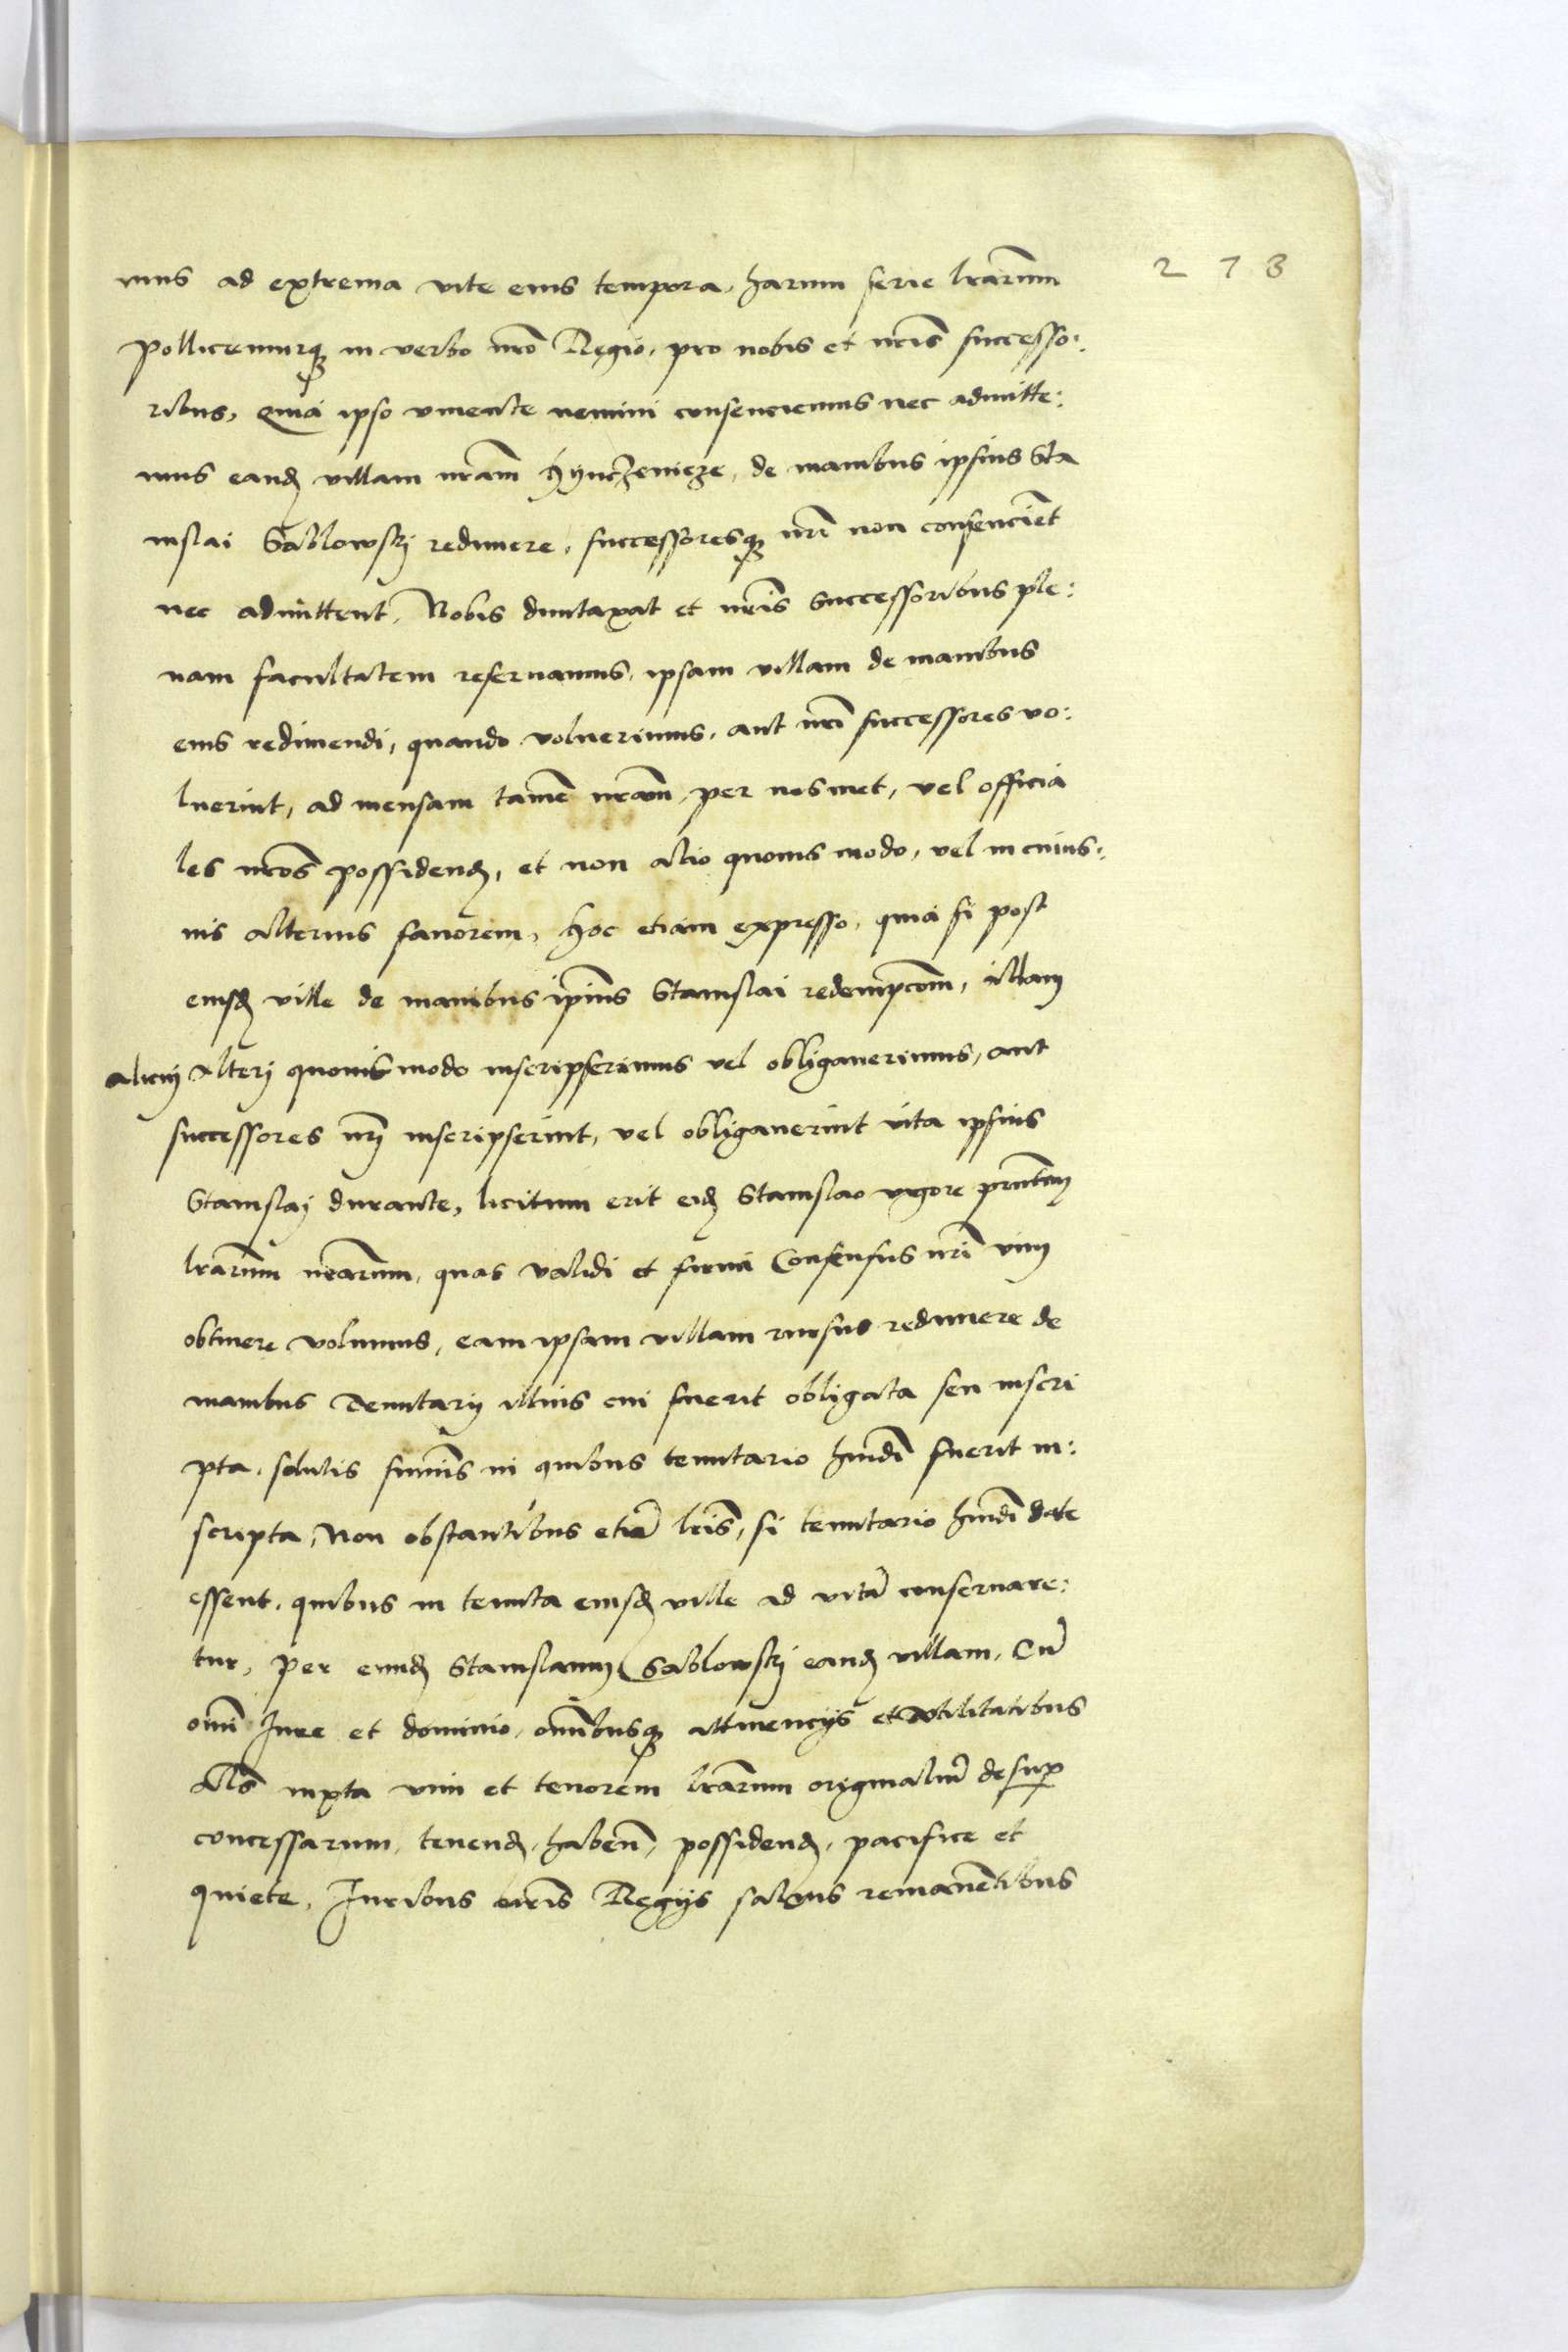 mus ad extrema vite eius tempora, harum serie lrarum
273
Pollicemurq in verbo nro Regio, pro nobis et nris successo:
ribus, Quia ipso vivente nemini consenciemus nec admitte:
mus eand villam nram Hynczenicze, de manibus ipsius Sta
nislai Gablowskj redimere, successoresq nri non consencient
nec admittent, Nobis duntaxat et nris Successoribus ple:
nam facultatem reservamus, ipsam villam de manibus
eius redimendi, quando voluerimus, aut nri successores vo:
luerint, ad mensam tame nram, per nosmet, vel officia
les nros possidend, et non alio quovis modo, vel in cuius:
vis alterius favorem, Hoc etiam expresso, quia si post
eiusd ville de manibus ipius Stanislai redempcom, illam
alicui alterj quovismodo inscripserimus vel obligaverimus, aut
successores nrj inscripserint, vel obligaverint vita ipsius
Stanislaj durante, licitum erit eid Stanislao vigore prntium
lrarum nrarum, quas validi et firmi Consensus nri vim
obtinere volumus, eam ipsam villam rursus redimere de
manibus Tenutarij illius cui fuerit obligata seu inscri
pta, solutis sumis in quibus tenutario hmodi fuerit in:
scripta, Non obstantibus etia lris, si tenutario hmodi date
essent, quibus in tenuta eiusd ville ad vita conservare:
tur, per eund Stanislaum Gablowskj eand villam, Cu
omi Jure et dominio, omibusq attinencijs et vtilitatibus
als iuxta vim et tenorem lrarum originaliu desup
concessarum, tenend, haben, possidend, pacifice et
quiete, Juribus nris Regijs salvis remanentibus